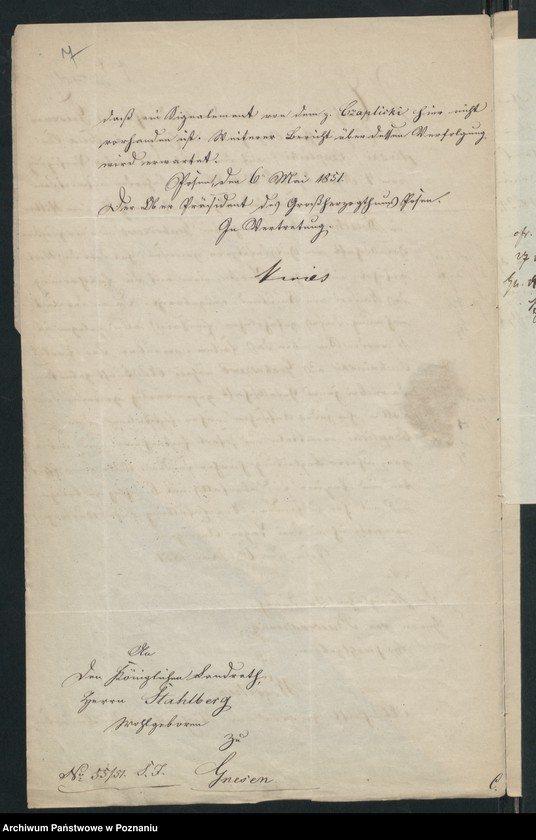 7
daß ein Signalement von dem p. Czapliski hier nicht
vorhanden ist. Weiterer Bericht über dessen Verfolgung
wird erwartet.
Posen, den 6 Mai 1851.
Der Ober Präsident des Großherzogthums Posen.
In Vertretung.
An
Den Königlichen Landrath,
Herrn Stahlberg
Wohlgeboren
Zu
Gnesen
No 55/51. S. J.
C.
Archiwum Państwowe w Poznaniu